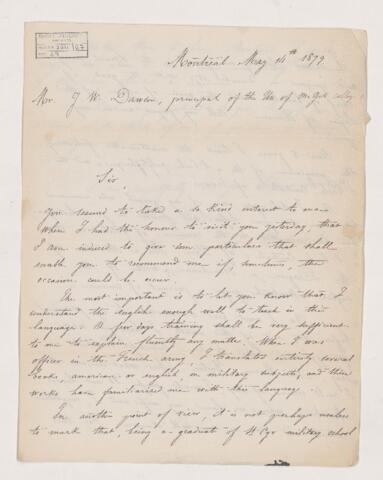 Montréal May 14th 1879
Mr. J W. Dawson, principal of the Un of McGill College
Sir,
You seemed to take a so kind interest to me
when I had the honour to visit you yesterday, that
I am induced to give som particulars that shall
enable you to recommend me if, sometimes, the
occasion could be occur.
The most important is to let you know that I
understand the english enough well to teach in this
language. A few days training shall be very sufficient
to me to explain fluently any matter. When I was
officer in the French army, I translated entirely several
books, american or english on military subjects, and these
works have familiarised me with this language.
In another point of view, it is not perhaps useless
to mark that, being a graduate of St Cyr military school